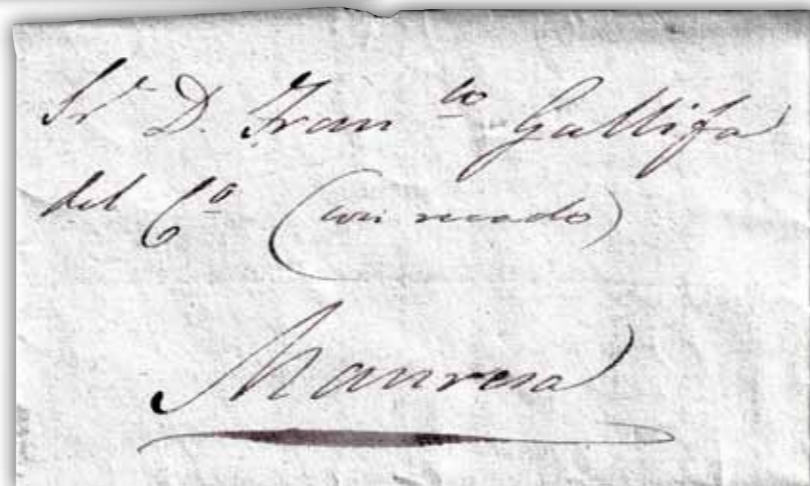 Sr. D. Franco Gallifa
del Co (con recado)
Manresa